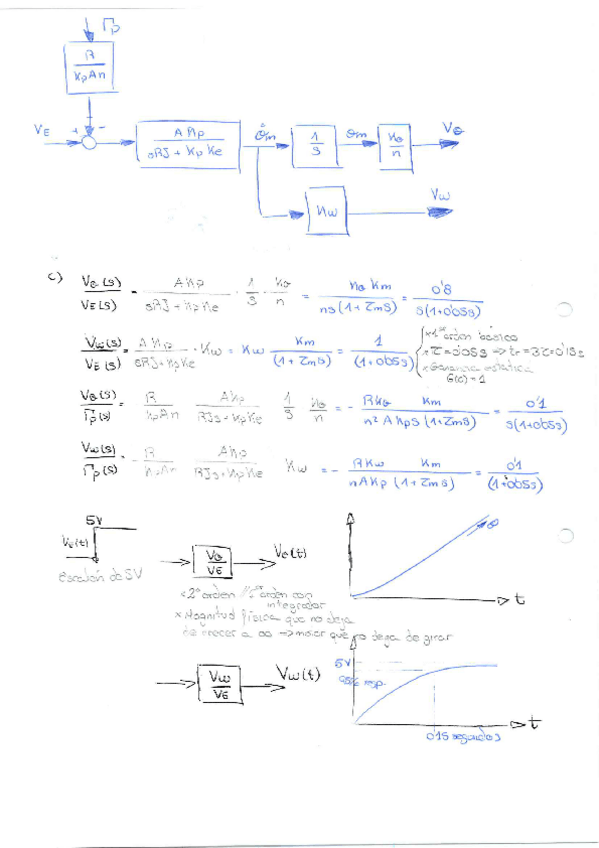 Γp
R
KpAn
VE + - AKp / sRJ + KpKe θ̇m 1/s θm Kθ/n Vθ
Kω Vω
c) Vθ(s)/VE(s) = AKp/(sRJ + KpKe) · 1/s · Kθ/n = Kθ Km/(ns(1+τms)) = 0'8/(s(1+0'05s))
Vω(s)/VE(s) = AKp/(sRJ + KpKe) · Kω = Kω Km/(1+τms) = 1/(1+0'05s)
x 1er orden básico
x τ = 0'05s ⇒ tr = 3τ = 0'15s
x Ganancia estática
G(0) = 1
Vθ(s)/Γp(s) = - R/(KpAn) AKp/(RJs + KpKe) 1/s Kθ/n = - RKθ Km/(n² AKps(1+τms)) = 0'1/(s(1+0'05s))
Vω(s)/Γp(s) = - R/(KpAn) AKp/(RJs + KpKe) Kω = - RKω Km/(nAKp(1+τms)) = 0'1/(1+0'05s)
5V
VE(t)
escalón de 5V
Vθ/VE Vθ(t)
∞
t
x 2º orden // 1er orden con
integrador
x Magnitud física que no deja
de crecer a ∞ → motor que no deja de girar
Vω/VE Vω(t)
5V
95% resp.
t
0'15 segundos